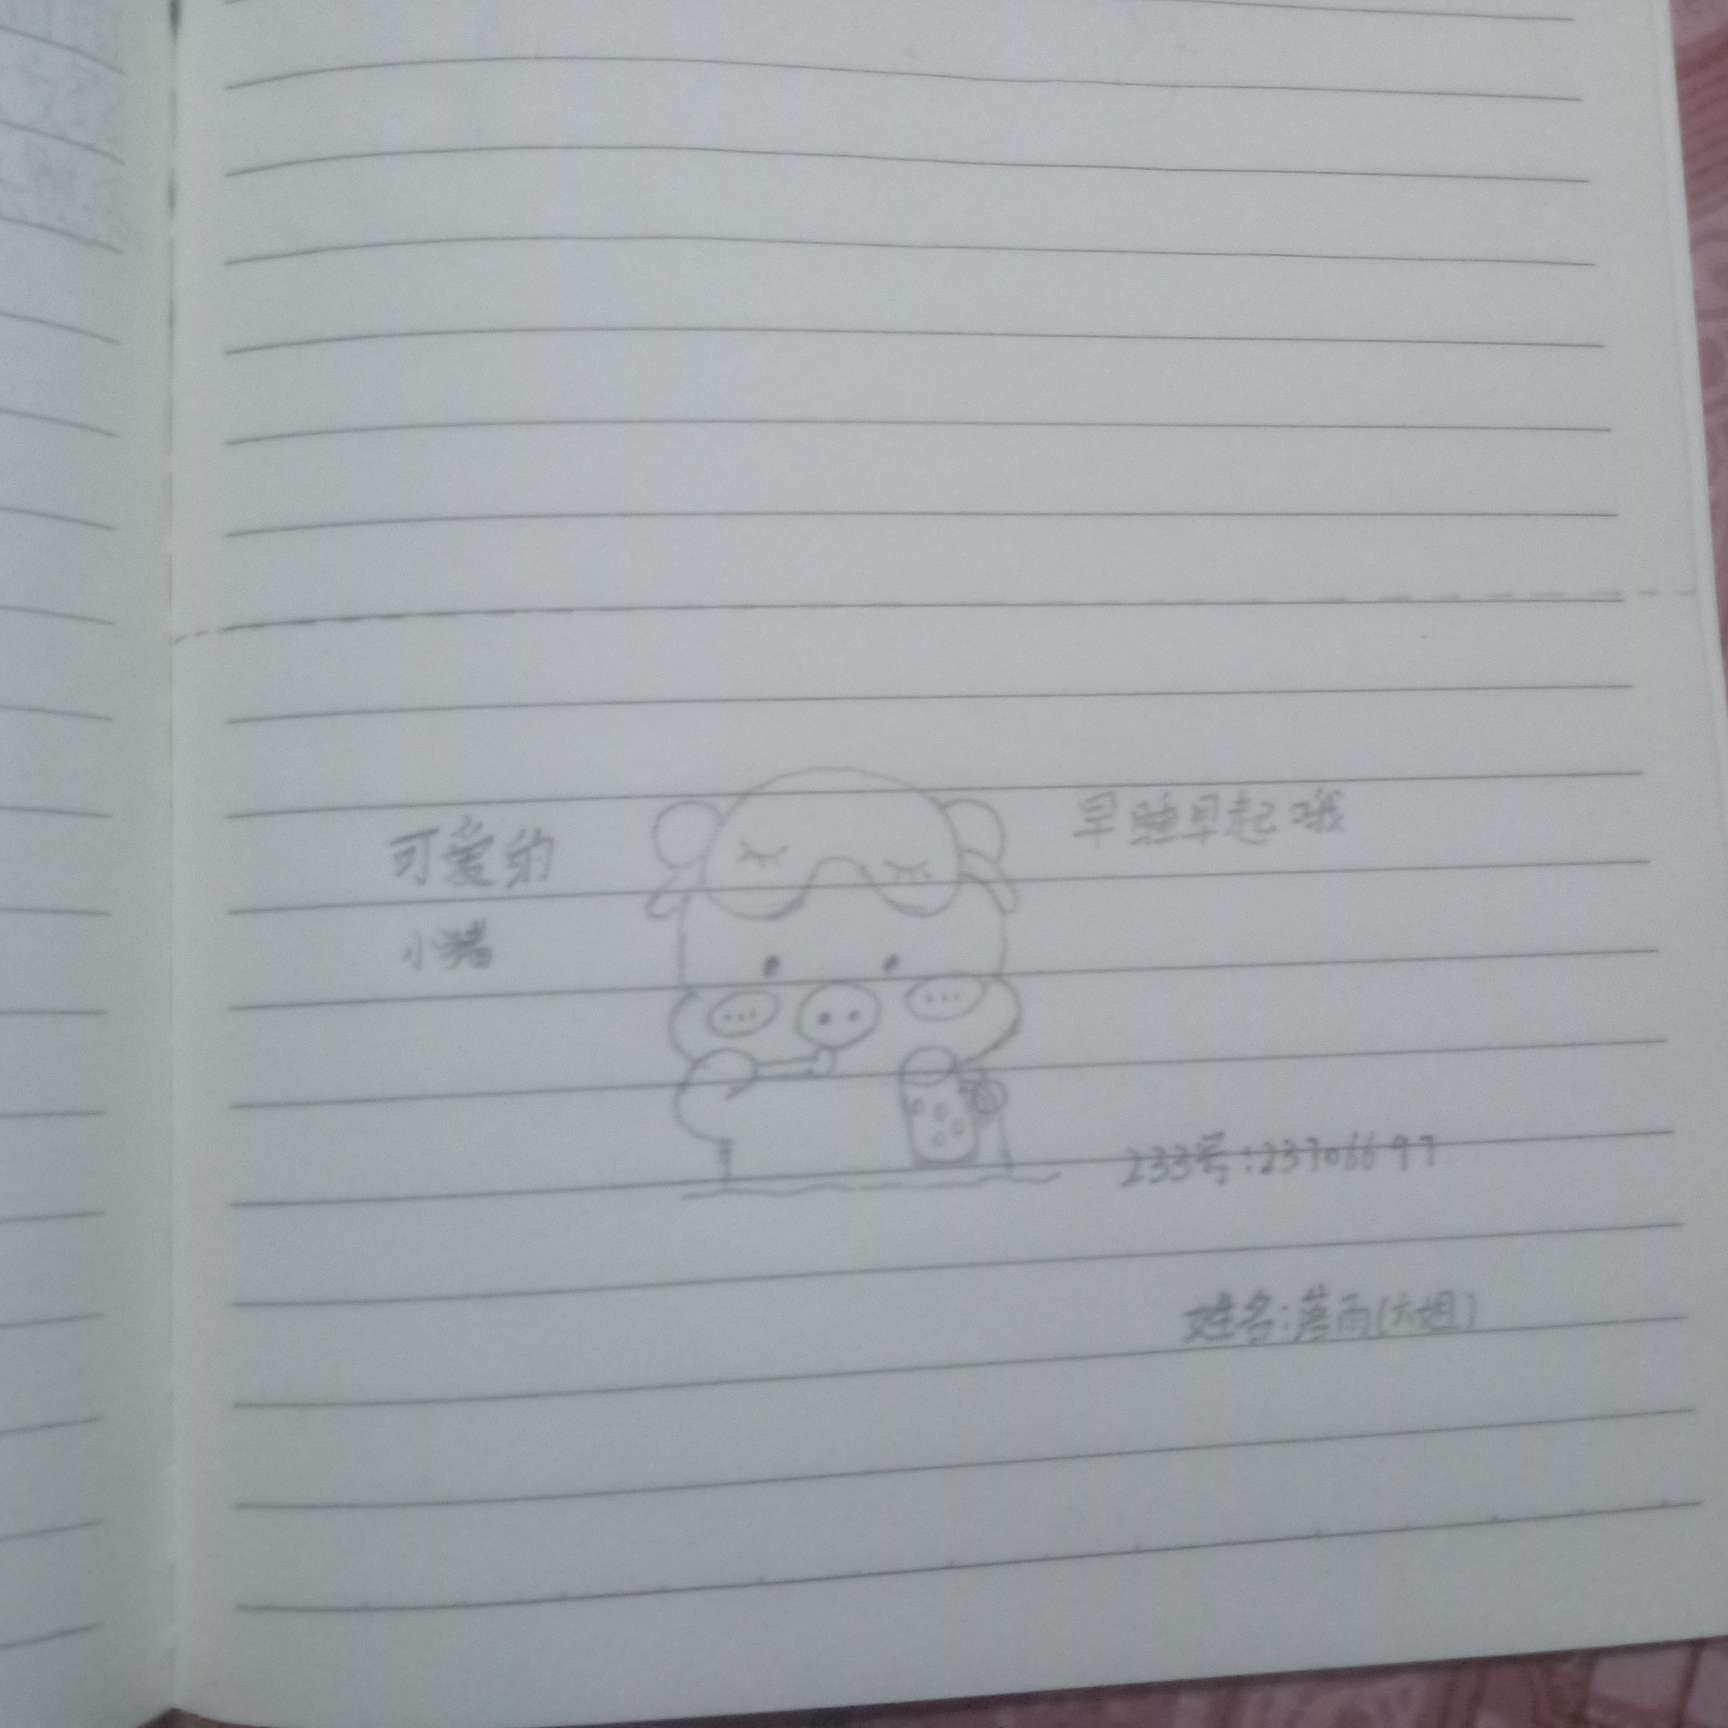 可爱的
小猪
早睡早起哦
233号:23706697
姓名:落雨(六姐)